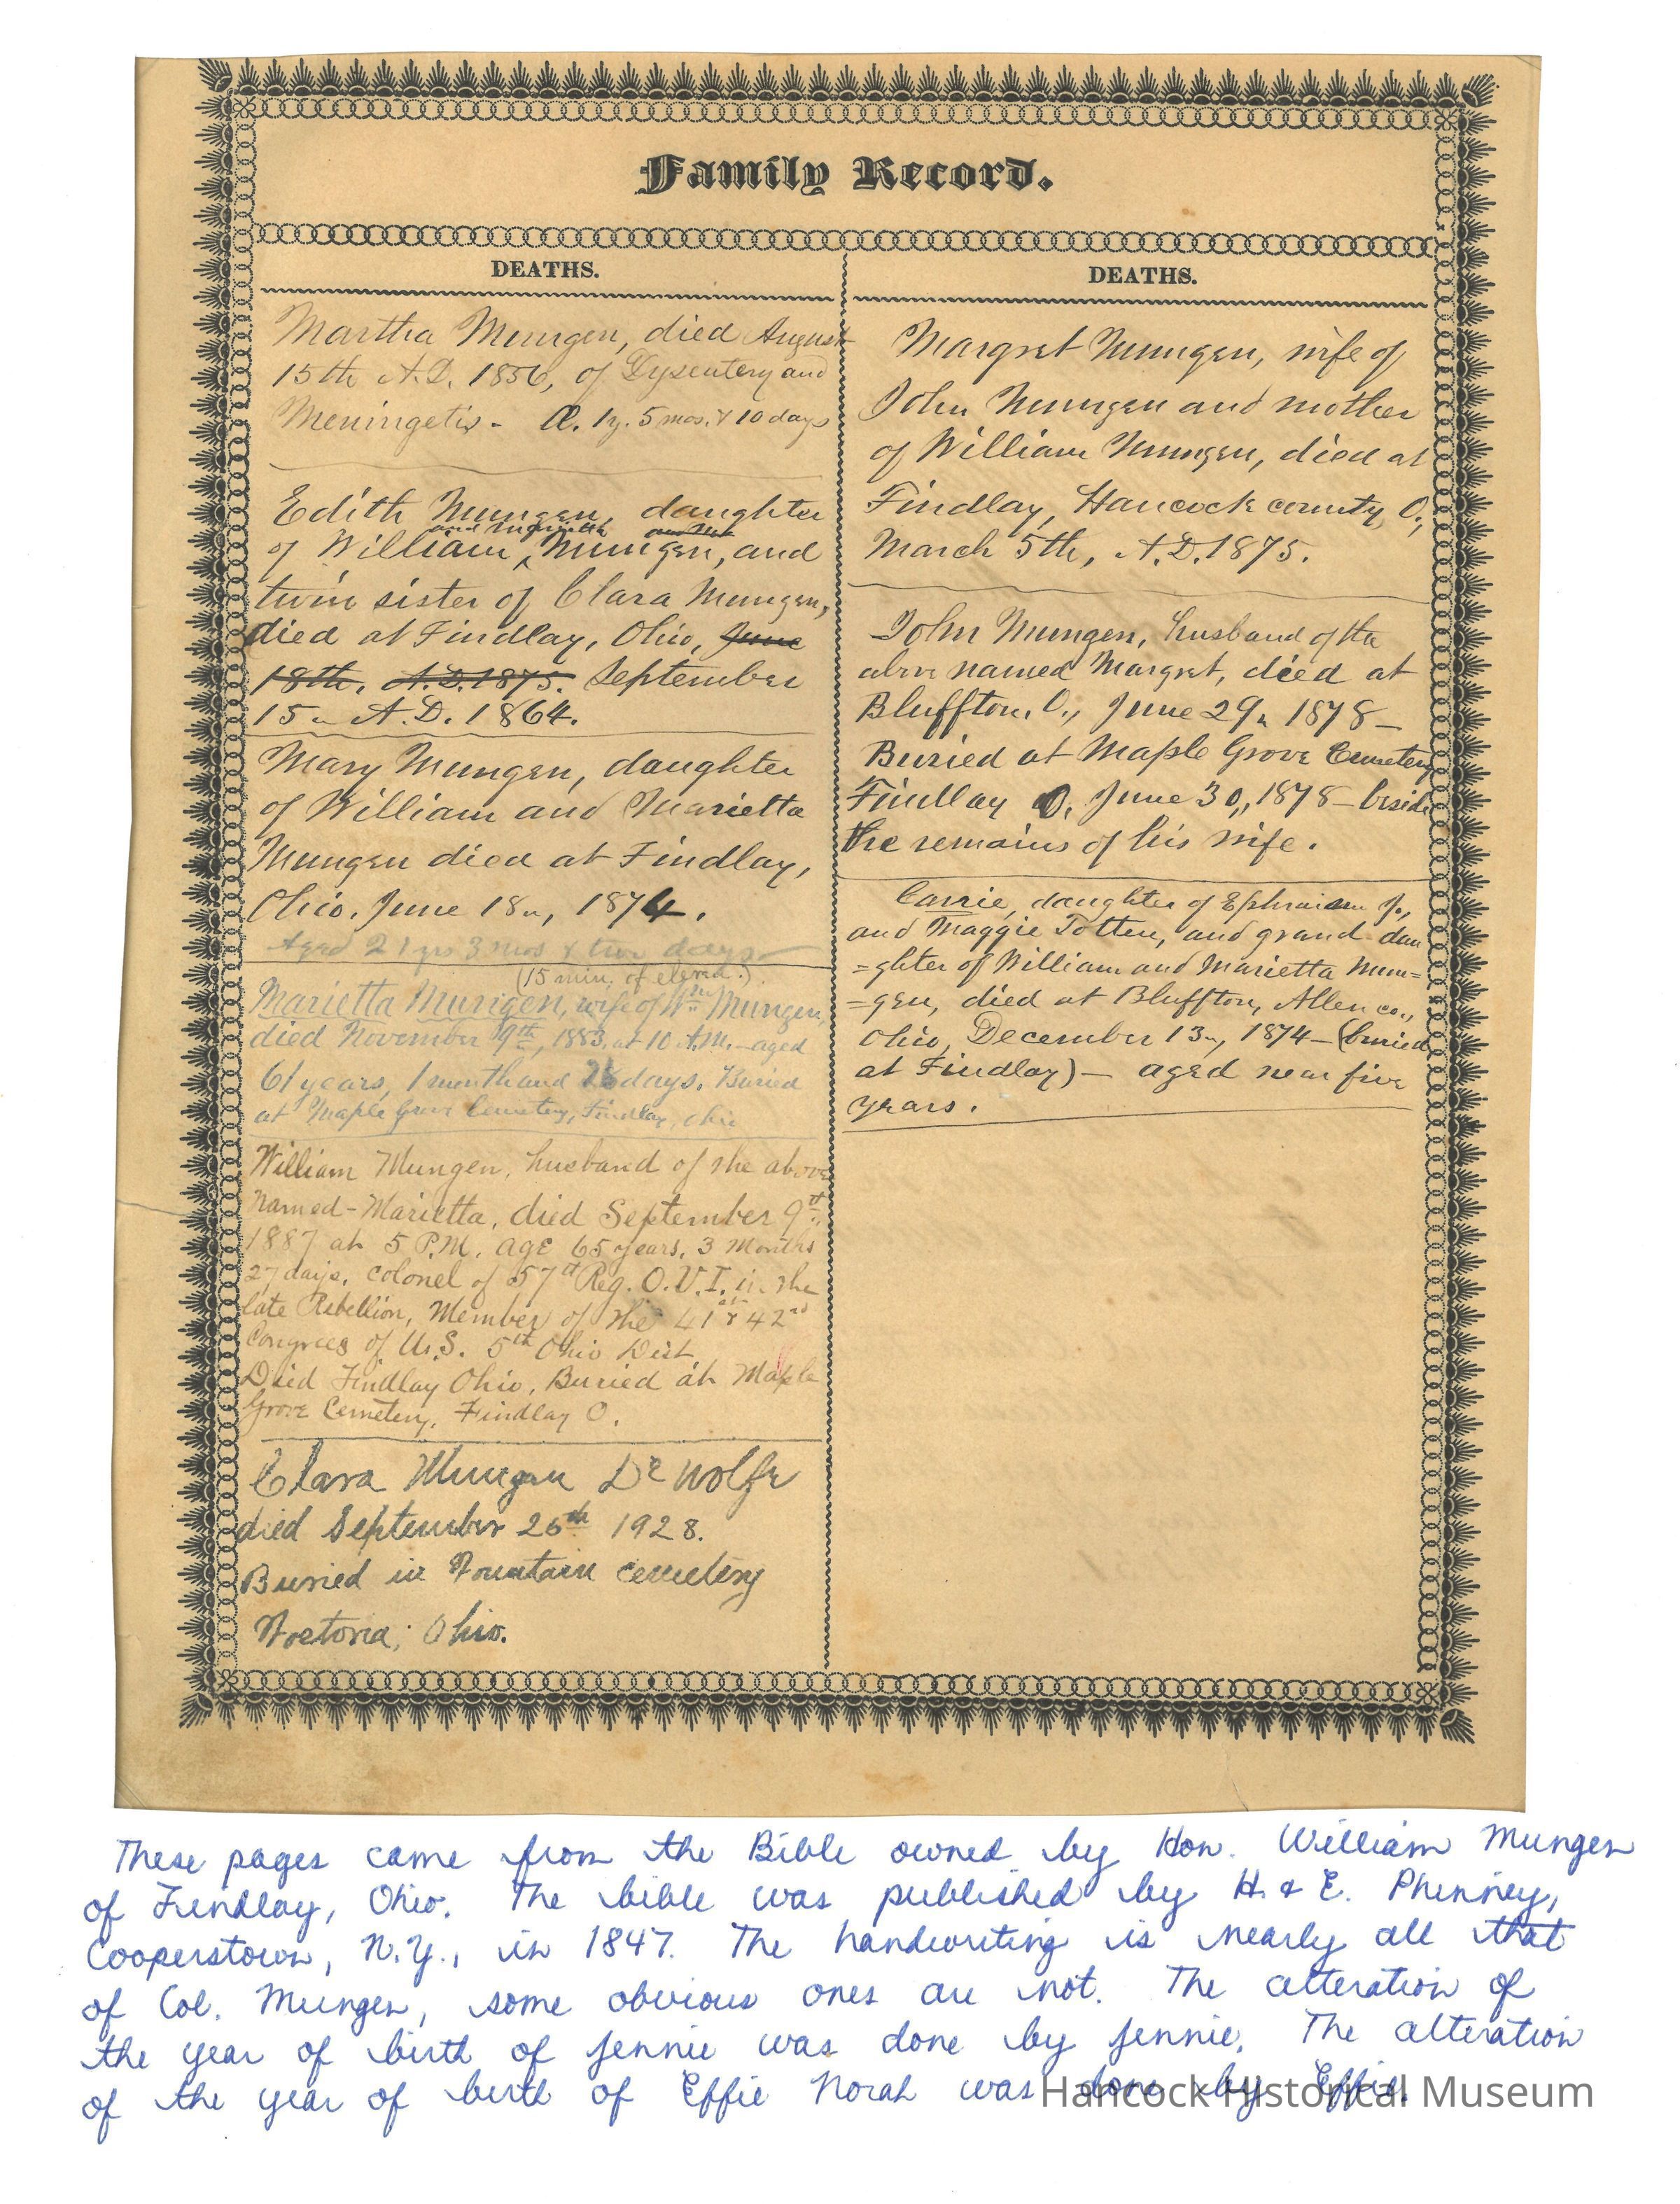 Family Record.
DEATHS.
Martha Mungen, died August
15th A.D. 1856, of Dysentery and
Meningetis - Æ. 1y. 5 mos. & 10 days
Edith Mungen, daughter
and
of William, Mungen, and
twin sister of Clara Mungen,
died at Findlay, Ohio, June
18th, A.D. 1875. September
15 A.D. 1864.
Mary Mungen, daughter
of William and Marietta
Mungen died at Findlay,
Ohio, June 18, 1874.
Aged 21 yrs 3 mos & two days
(15 min. of eleven.)
Marietta Mungen, wife of Wm Mungen,
died November 9th, 1883, at 10 A.M. - aged
61 years, 1 month and days. Buried
at Maple Grove Cemetery, Findlay, Ohio
William Mungen, husband of the above
named - Marietta, died September 9th
1887 at 5 P.M. age 65 years, 3 Months
27 days. Colonel of 57th Reg. O.V.I. in the
late Rebellion, Member of the 41st & 42nd
Congress of U.S. 5th Ohio Dist
Died Findlay Ohio, Buried at Maple
Grove Cemetery, Findlay O.
Clara Mungen De Wolfe
died September 26th 1928.
Buried in Fountain cemetery
Fostoria, Ohio.
DEATHS.
Margret Mungen, wife of
John Mungen and mother
of William Mungen, died at
Findlay, Hancock county, O.,
March 5th, A.D. 1875.
John Mungen, husband of the
above named Margret, died at
Bluffton, O., June 29, 1878 -
Buried at Maple Grove Cemetery
Findlay O. June 30, 1878 - beside
the remains of his wife.
Carrie, daughter of Ephraim J.,
and Maggie Totten, and grand dau
=ghter of William and Marietta Mun=
=gen, died at Bluffton, Allen co.,
Ohio, December 13, 1874 - (buried
at Findlay) - aged near five
years.
These pages came from the Bible owned by Hon. William Mungen
of Findlay, Ohio. The bible was published by H. & E. Phinney,
Cooperstown, N.Y., in 1847. The handwriting is nearly all that
of Col. Mungen, some obvious ones are not. The alteration of
the year of birth of Jennie was done by Jennie. The alteration
of the year of birth of Effie Norah was done by Effie.
Hancock Historical Museum